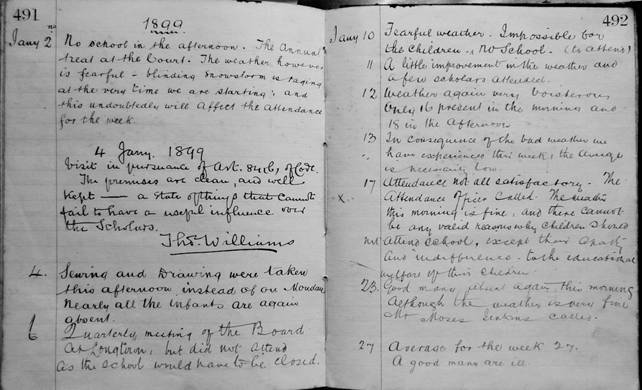 491
1899
Jany 2nd
No school in the afternoon. The Annual
treat at the Court. The weather however
is fearful - blinding snowstorm is raging
at the very time we are starting; and
this undoubtedly will affect the attendance
for the week.
4 Jany. 1899
Visit in pursuance of Art. 84(b) of Code
The premises are clean, and well
kept — a state of things that cannot
fail to have a useful influence over
the Scholars.
Thos. Williams
4. Sewing and Drawing were taken
this afternoon instead of on Monday
Nearly all the infants are again
absent.
6 Quarterly meeting of the Board
at Longtown, but did not attend
as the school would have to be closed.
492
Jany 10 Fearful weather. Impossible for
the children. No School.
11 A little improvement in the weather and
a few scholars attended.
12 Weather again very boisterous
Only 16 present in the morning and
18 in the afternoon
13 In consequence of the bad weather we
have experienced this week, the average
is necessarily low.
17 Attendance not all satisfactory. The
x Attendance officer called. The
this morning is fine, and there cannot
be any valid reason why children should
not attend school, except their
and indifference to the educational
welfare of their children
23. Good many absent again this morning
Although the weather is very fine
Mr Moses Jenkins called.
27 Average for the week 27.
A good many are ill.